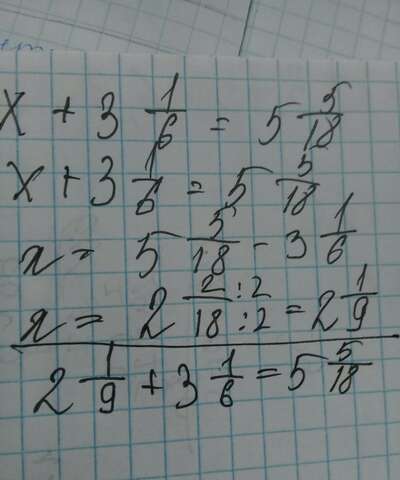 x + 3 1/6 = 5 5/18
x + 3 1/6 = 5 5/18
x = 5 5/18 - 3 1/6
x = 2 2/18 :2/:2 = 2 1/9
2 1/9 + 3 1/6 = 5 5/18